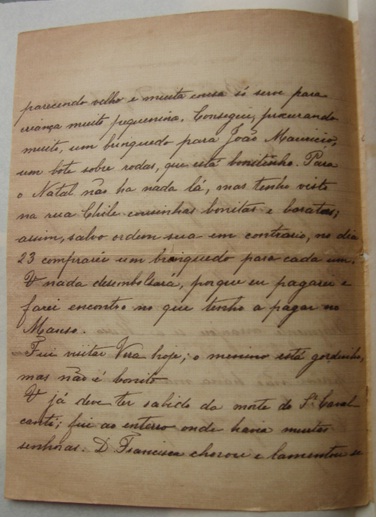 parecendo velho e muita cousa só serve para
criança muito pequenina. Consegui, procurando
muito, um brinquedo para João Mauricio,
um bote sobre rodas, que está bonitinho. Para
o Natal não ha nada lá, mas tenho visto
na rua Chile cousinhas bonitas e baratas;
assim, salvo ordem sua em contrario, no dia
23 comprarei um brinquedo para cada um.
V nada desembolsará, porque eu pagarei e
farei encontro no que tenho a pagar no
Manso.
Fui visitar Vera hoje; o menino está gordinho,
mas não é bonito
V já deve ter sabido da morte do Sr. Caval
canti; fui ao enterro onde havia muitas
senhoras. D Francisca chorou e lamentou se